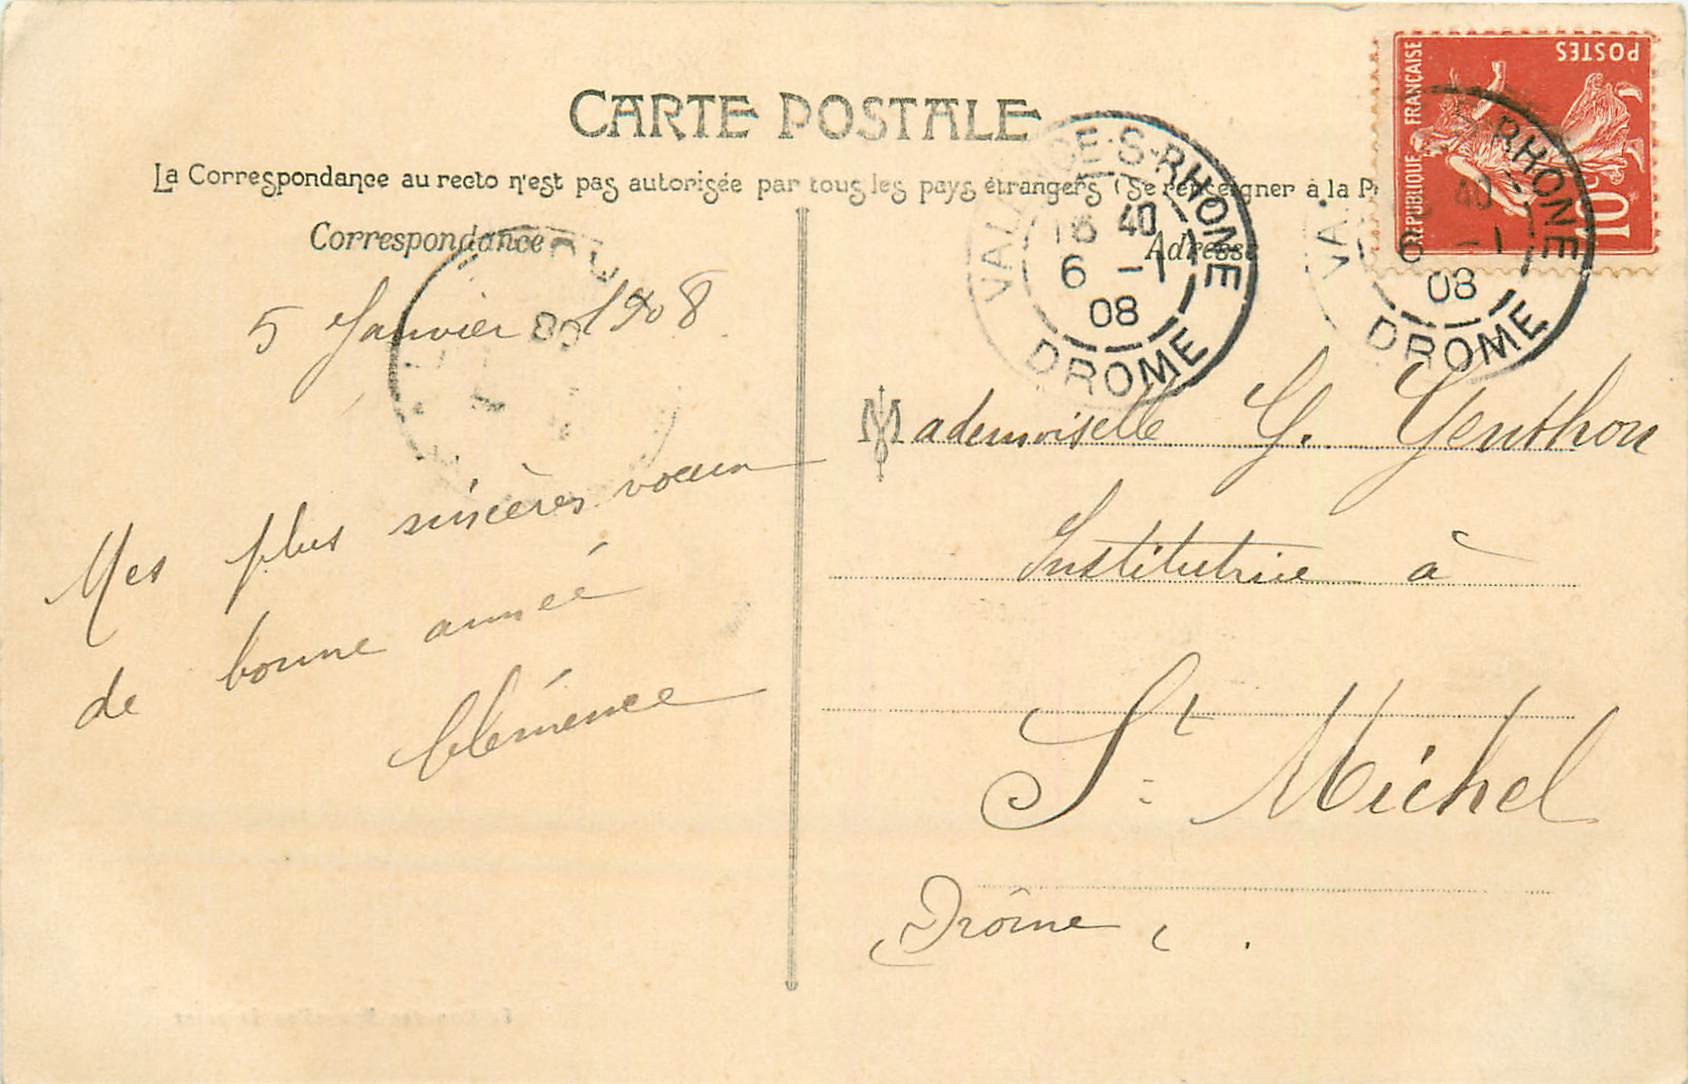 CARTE POSTALE
La Correspondance au recto n'est pas autorisée par tous les pays étrangers (Se renseigner à la P
Correspondance
Adresse
RÉPUBLIQUE FRANÇAISE
POSTES
10c
VALENCE-S-RHONE
18 40
6 -1
08
DROME
VA
RHONE
40
6 -1
08
DROME
08
5 Janvier 1908
Mes plus sincères voeux
de bonne année
Clémence
Mademoiselle G. Genthon
Institutrice à
St Michel
Drôme